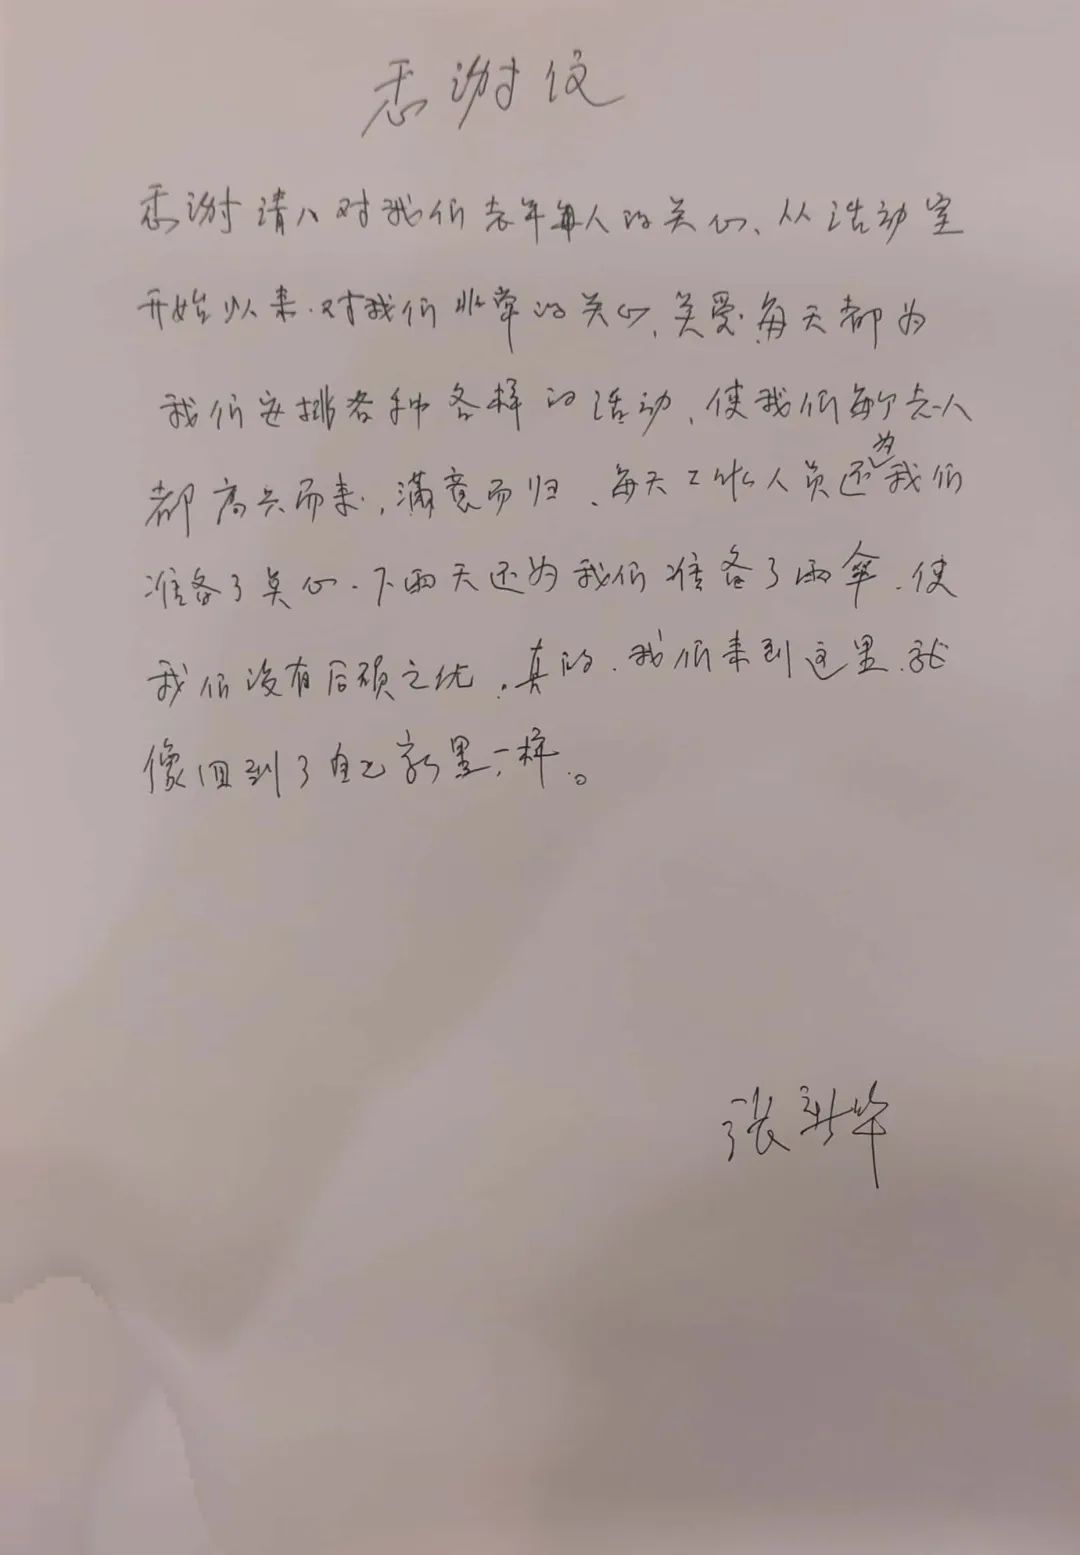 感谢信
感谢请八对我们老年每人的关心、从活动室
开始以来.对我们非常的关心,关爱.每天都为
我们安排各种各样的活动,使我们每个老人
都高兴而来,满意而归、每天工作人员还为我们
准备了点心.下雨天还为我们准备了雨伞.使
我们没有后顾之忧,真的.我们来到这里.就
像回到了自己家里一样.。
张新华